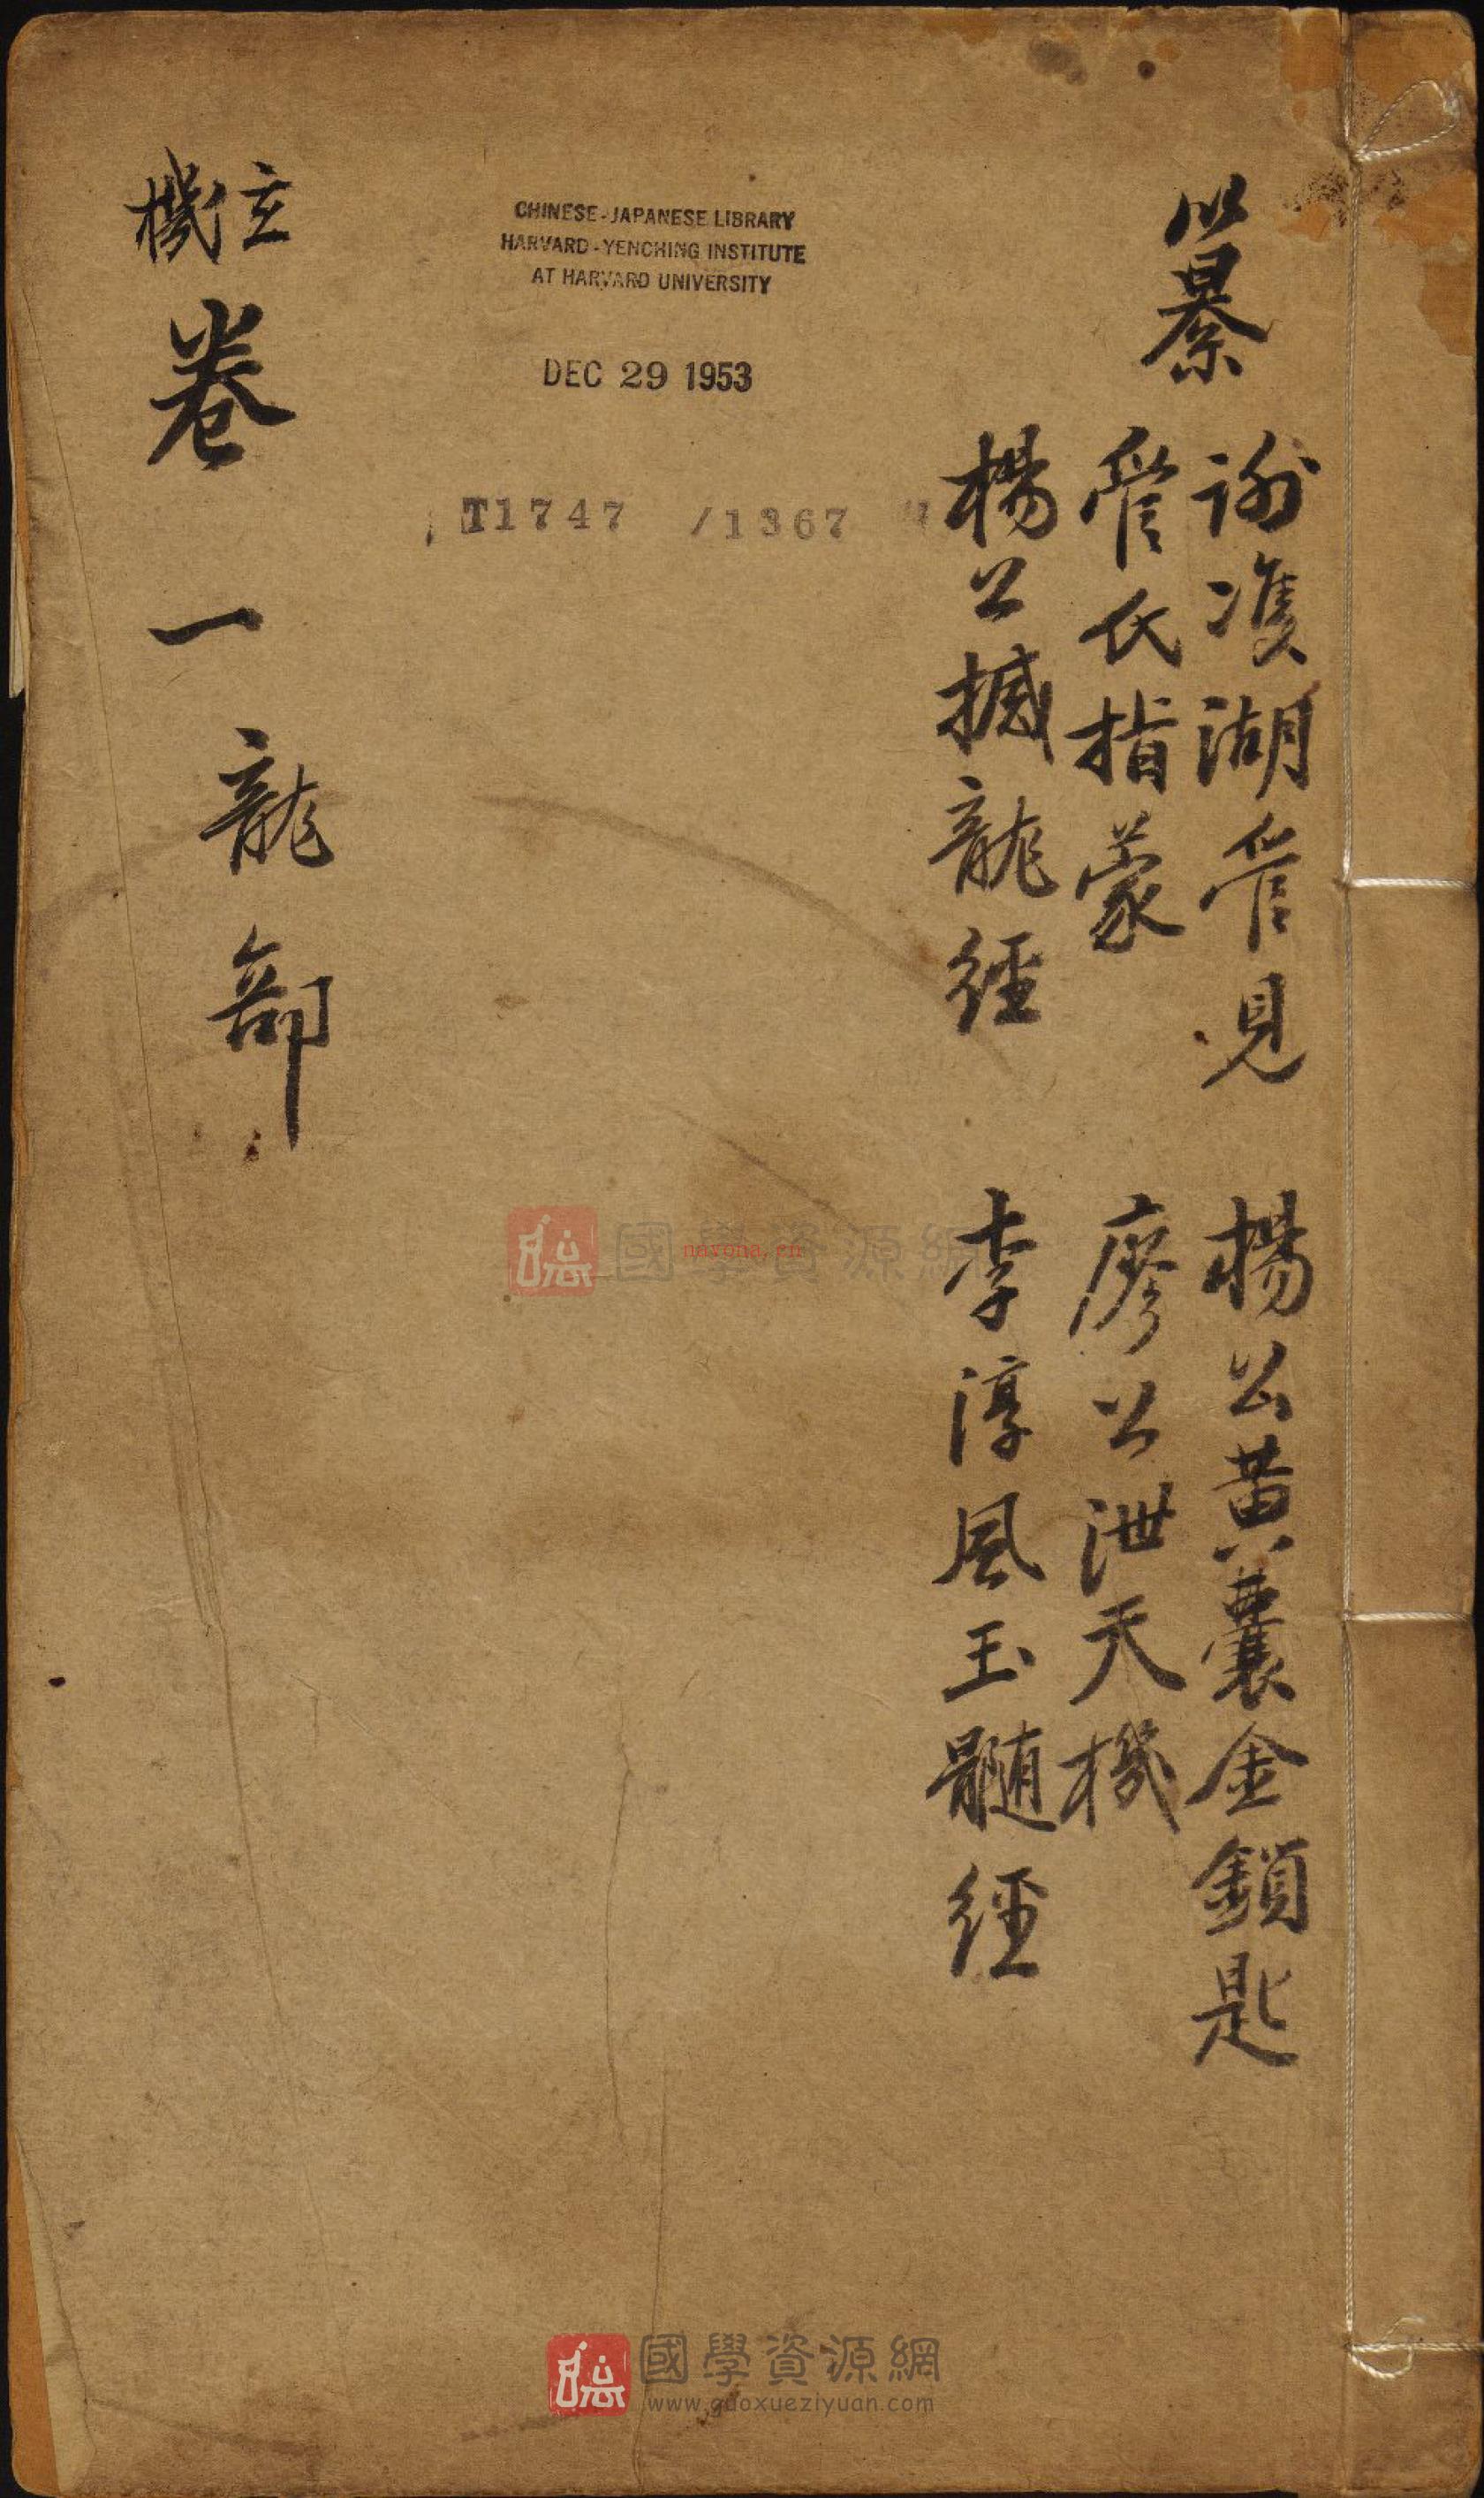 纂
謝雙湖管見 楊公黃囊金鎖匙
管氏指蒙 廖公泄天機
楊公撼龍經 李淳風玉髓經
CHINESE-JAPANESE LIBRARY
HARVARD-YENCHING INSTITUTE
AT HARVARD UNIVERSITY
DEC 29 1953
T1747 /1367
玄機卷一 龍部
國學資源網
nayona.cn
國學資源網
www.guoxueziyuan.com